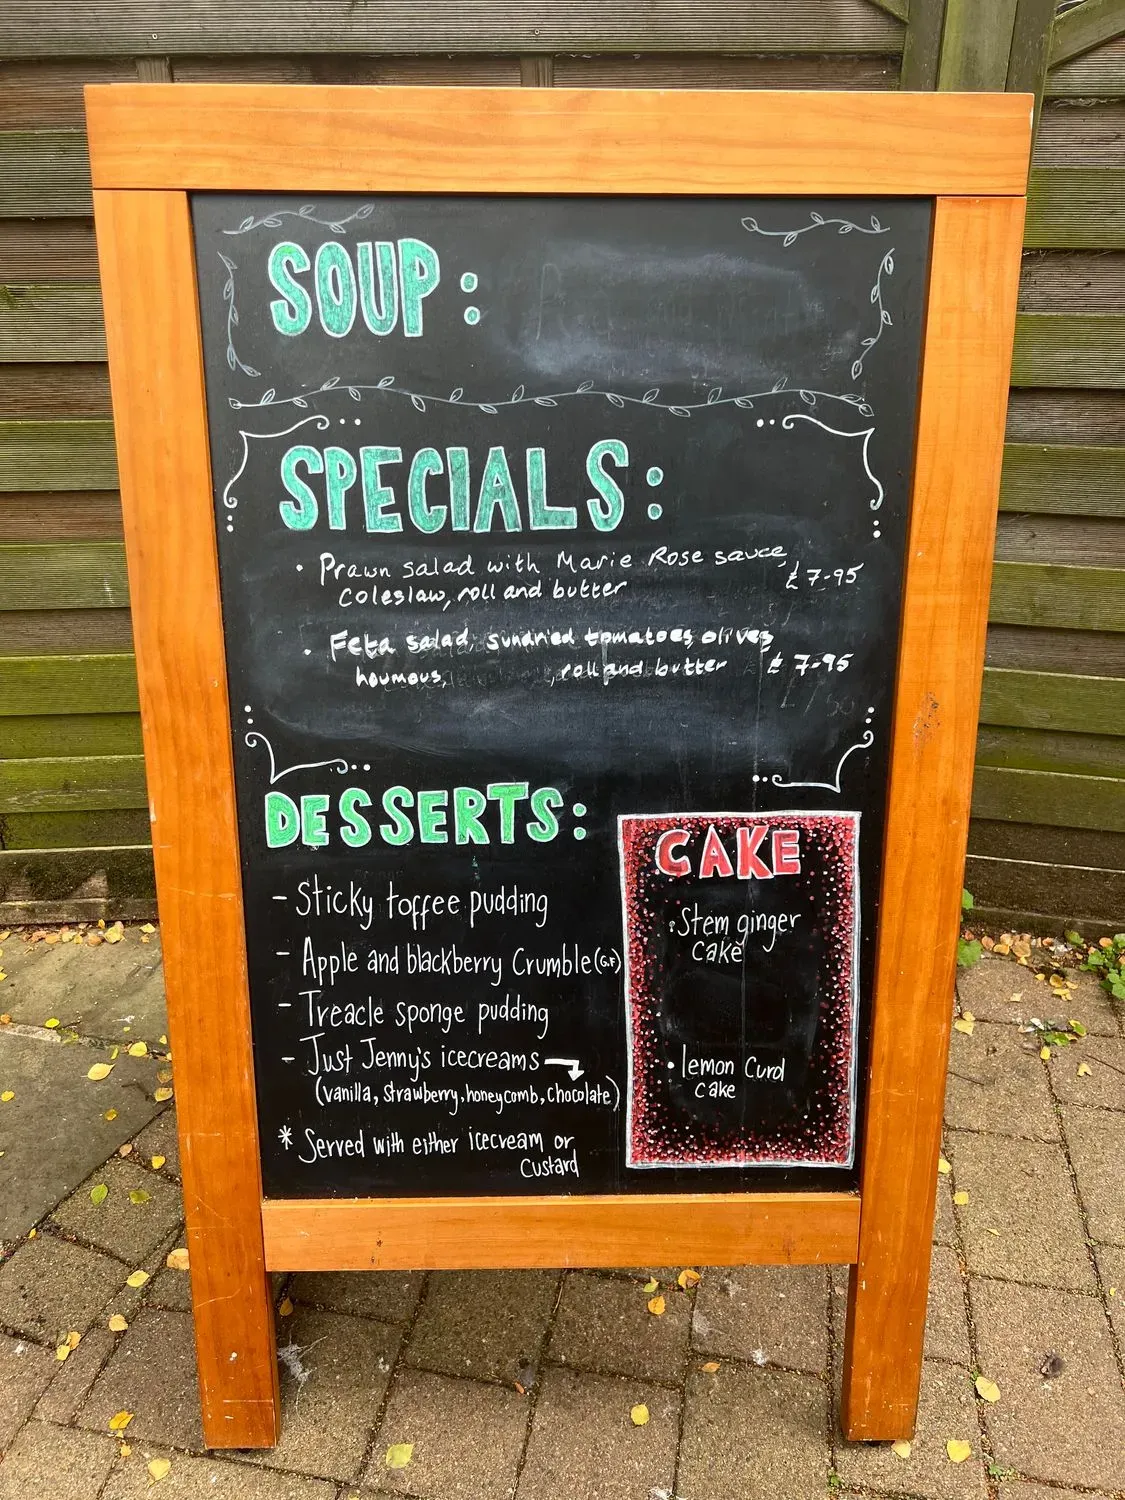 SOUP:
SPECIALS:
• Prawn salad with Marie Rose sauce,
coleslaw, roll and butter £7-95
• Feta salad, sundried tomatoes, olives
houmous, , roll and butter £7-95
DESSERTS:
- Sticky toffee pudding
- Apple and blackberry Crumble (G.F)
- Treacle sponge pudding
- Just Jenny's icecreams
(vanilla, strawberry, honeycomb, chocolate)
* Served with either icecream or
custard
CAKE
• Stem ginger
cake
• lemon Curd
cake